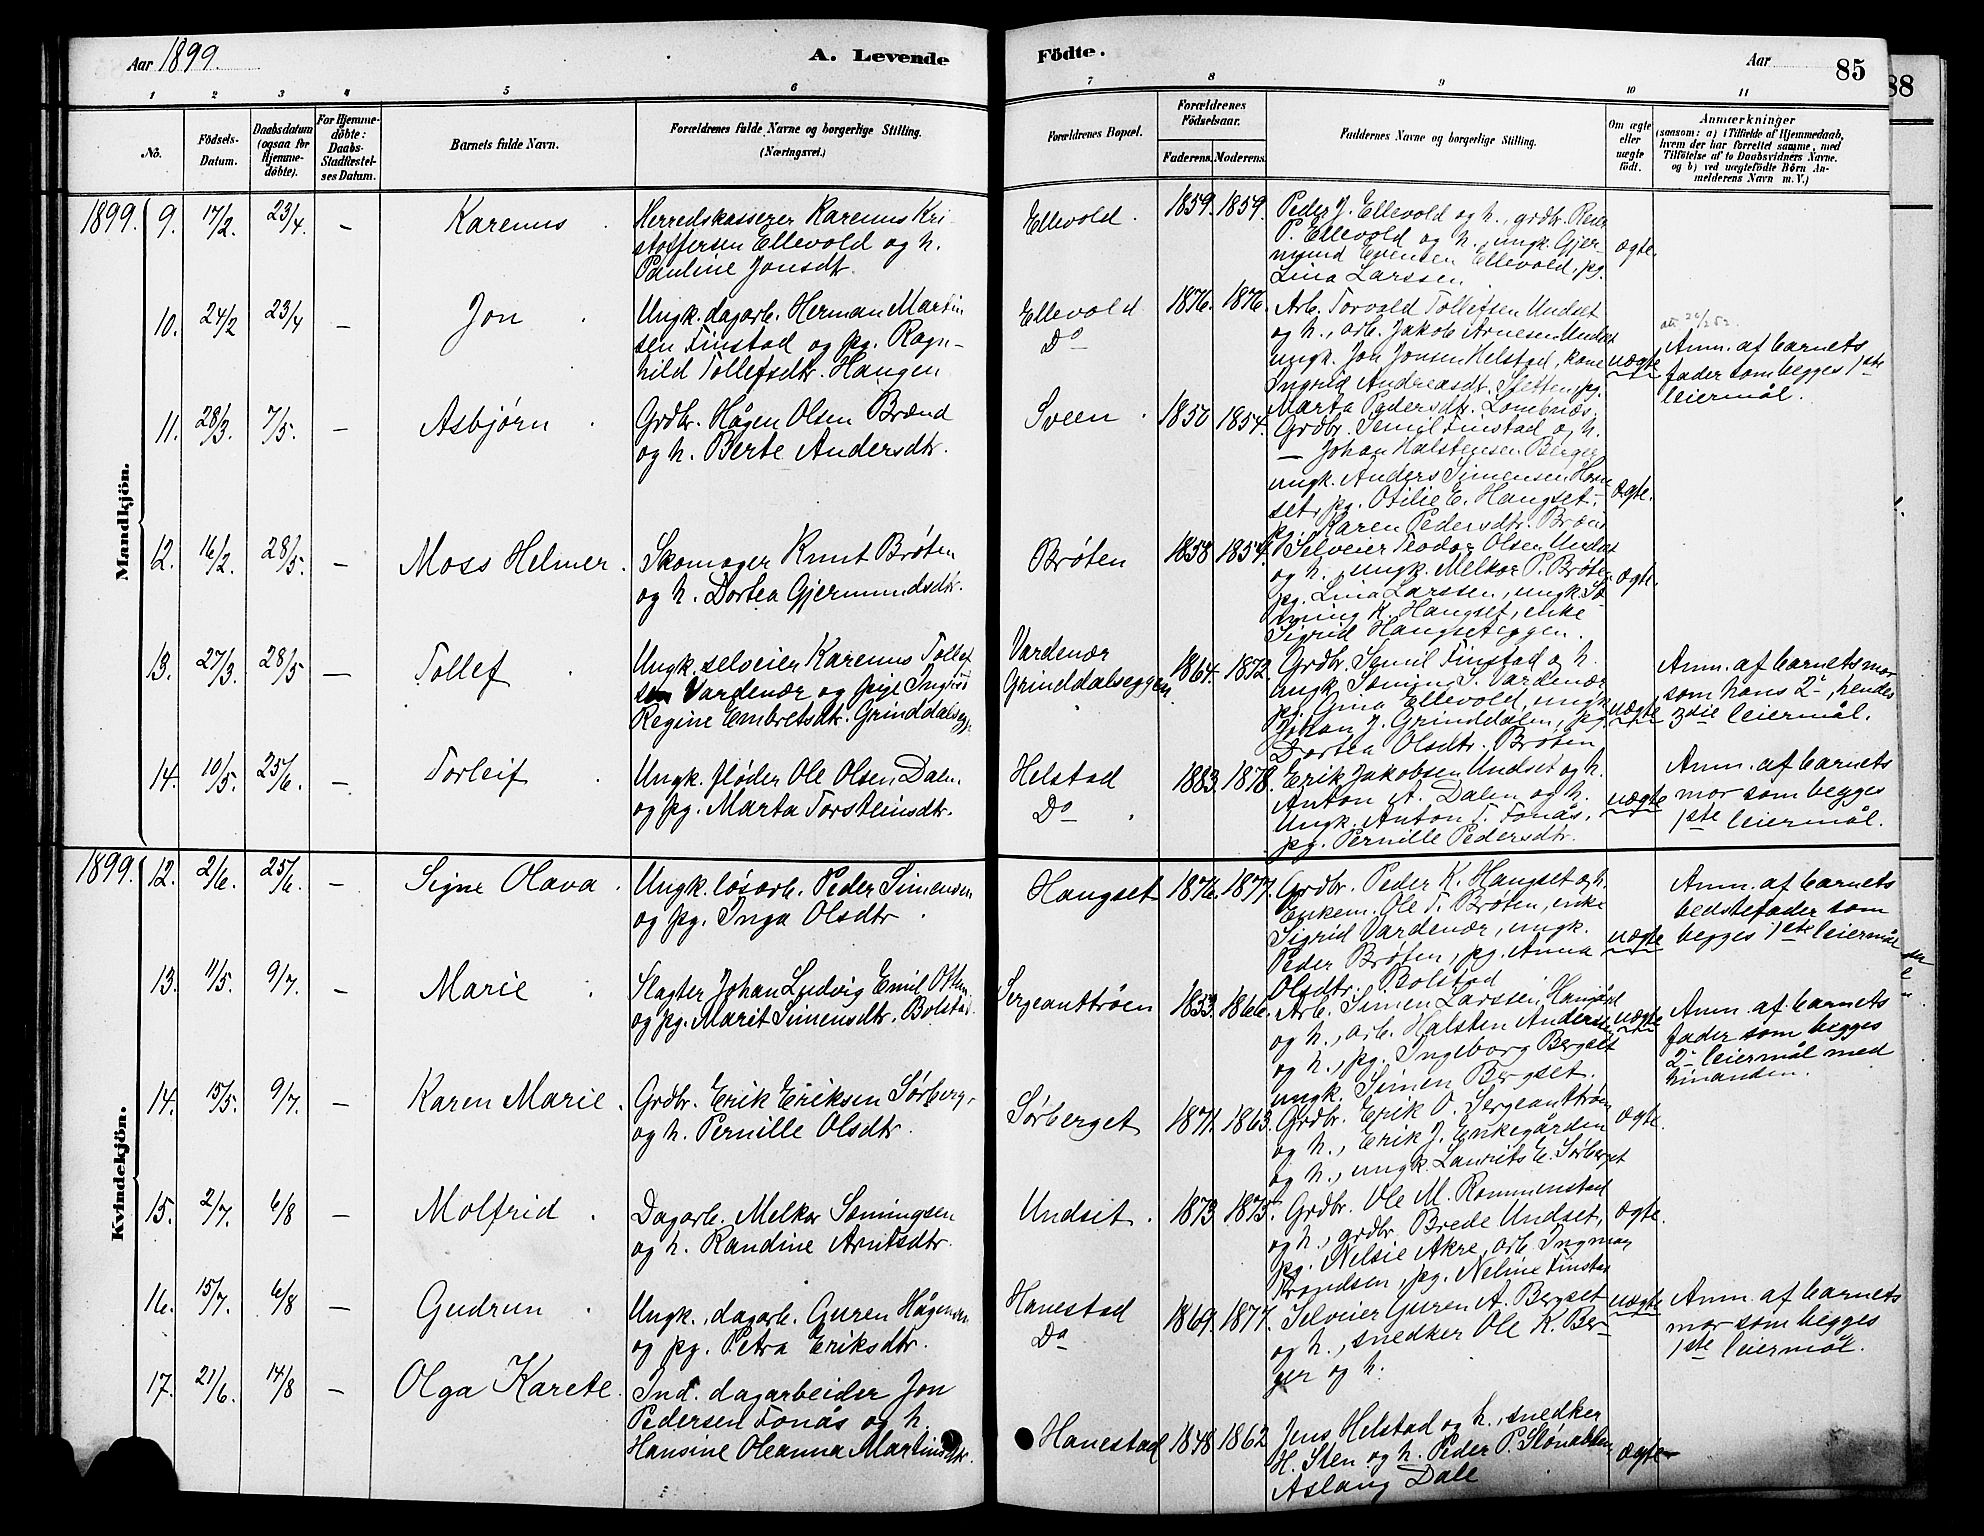 Aar 1899.
A. Levende
Födte.
Aar
85
88
1
2
3
4
5
6
7
8
9
10
11
No.
Födsels-
Datum.
Daabsdatum
(ogsaa for
Hjemme-
döbte).
For Hjemme-
döbte:
Daabs-
Stadfæstel-
ses Datum.
Barnets fulde Navn.
Forældrenes fulde Navne og borgerlige Stilling.
(Næringsvei.)
Forældrenes Bopæl.
Forældrenes
Födselsaar.
Faderens.
Moderens.
Faddernes Navne og borgerlige Stilling.
Om ægte
eller
uægte
født.
Anmærkninger
(saasom: a) i Tilfælde af Hjemmedaab,
hvem der har forrettet samme, med
Tilföielse af to Daabsvidners Navne.
og b) ved uægtefödte Börn An-
melderens Navn m. V.)
Mandkjön.
1899. 9. 17/2. 23/4. — Karenus
Herredskasserer Karenus Kri-
stoffersen Ellevold og h.
Pauline Jonsdt.
Ellevold. 1859. 1859.
Peder J. Ellevold og h., grdbr. Peder
P. Ellevold og h., ungk. Gjer-
mund Evensen Ellevold, pg.
Lina Larssen.
ægte.
10. 24/2 23/4 — Jon
Ungk. dagarb. Herman Martin
sen Finstad og pg. Ragn-
hild Tollefsdtr. Haugen
Ellevold
Do
1876. 1876.
Arb. Torvald Tollefsen Undset
og h., arb. Jakob Arnesen Undset
ungk. Jon Jonsen Helstad, kone
Ingrid Andreasdt. Sletten, pg.
Marta Pedersdtr. Lombnæs.
uægte
Anm. af barnets
fader som begges 1ste
leiermål.
11. 28/3. 7/5. — Asbjørn
Grdbr. Hågen Olsen Brænd
og h. Berte Andersdtr.
Sveen. 1850 1854.
Grdbr. Semil Finstad og h.
— Johan Halstensen Berger
ungk. Anders Simensen Horn
set, pg. Otilie E. Hangset.
pg. Karen Pedersdtr. Brænd
ægte.
12. 16/2. 28/5. — Moss Helmer.
Skomager Knut Brøten
og h. Dortea Gjermundsdtr.
Brøten 1858 1854.
Selveier Teodor Olsen Undset
og h., ungk. Melkor P. Brøten
pg. Lina Larssen, ungk. Sø-
ning K. Hangset, enke
Sigrid Hangseteggen.
ægte.
13. 27/3. 28/5 — Tollef
Ungk. selveier Karenus Tollef
sen Vardenær og pige Ingrid
Regine Embretsdtr. Grinddalsegg.
Vardenær
Grinddalseggen
1864. 1872.
Grdbr. Semil Finstad og h.
ungk. Søning S. Vardenær
pg. Gina Ellevold, ungk.
Johan J. Grinddalen, pg.
Dortea Olsdtr. Brøten
uægte
Anm. af barnets mor
som hans 2-, hendes
3die leiermål.
14. 10/5. 25/6. — Torleif
Ungk. fløder Ole Olsen Dalen
og pg. Marta Torsteinsdtr.
Helstad
Do
1883. 1878.
Erik Jakobsen Undset og h.
Anton A. Dalen og h.
Ungk. Anton T. Fonås.
pg. Pernille Pedersdtr.
uægte
Anm. af barnets
mor som begges
1ste leiermål.
Kvindekjön.
1899. 12. 2/6. 25/6. — Signe Olava.
Ungk. løsarb. Peder Simensen
og pg. Inga Olsdtr
Hangset 1876. 1877.
Grdbr. Peder K. Hangset og h.
Enkem. Ole T. Brøten, enke
Sigrid Vardenær, ungk.
Peder Brøten, pg. Anna
Olsdtr. Bolstad
uægte
Anm. af barnets
bedstefader som
begges 1ste leiermål
13. 11/5. 9/7. — Marie
Slagter Johan Ludvig Emil Olsen
og pg. Marit Simensdtr. Bolstad.
Sergeanttrøen 1853. 1866.
Arb. Simen Larssen Hangset
og h., arb. Halsten Andersen
og h., pg. Ingeborg Bergset
ungk. Simen Bergset.
uægte
Anm. af barnets
fader som begges
2- leiermål med
hinanden.
14. 15/5. 9/7. — Karen Marie.
Grdbr. Erik Eriksen Sørberg.
og h. Pernille Olsdtr.
Sørberget 1871. 1863.
Grdbr. Erik O. Sergeanttrøen
og h., Erik J. Enkegården
og h., ungk. Laurits E. Sørberget
ægte.
15. 2/7. 6/8 — Molfrid
Dagarb. Melkor Søningsen
og h. Randine Arntsdtr.
Undset. 1873 1875.
Grdbr. Ole M. Rommenstad
og h., grdbr. Brede Undset,
pg. Nelsie Akre, arb. Ingman
Trondsen, pg. Neline Finstad
ægte.
16. 15/7. 6/8 — Gudrun
Ungk. dagarb. Guren Hågensen
og pg. Petra Eriksdtr.
Hanestad
Do
1869. 1877.
Selveier Guren A. Bergset
og h., snedker Ole K. Ber-
ger og h.
uægte
Anm. af barnets
mor som begges
1ste leiermål.
17. 21/6. 14/8 — Olga Karete.
Ind. dagarbeider Jon
Pedersen Fonås og h.
Hansine Oleanna Martinsdtr.
Hanestad 1848 1862
Jens Helstad og h., snedker
H. Sten og h. Peder P.
Aslaug Dale
ægte